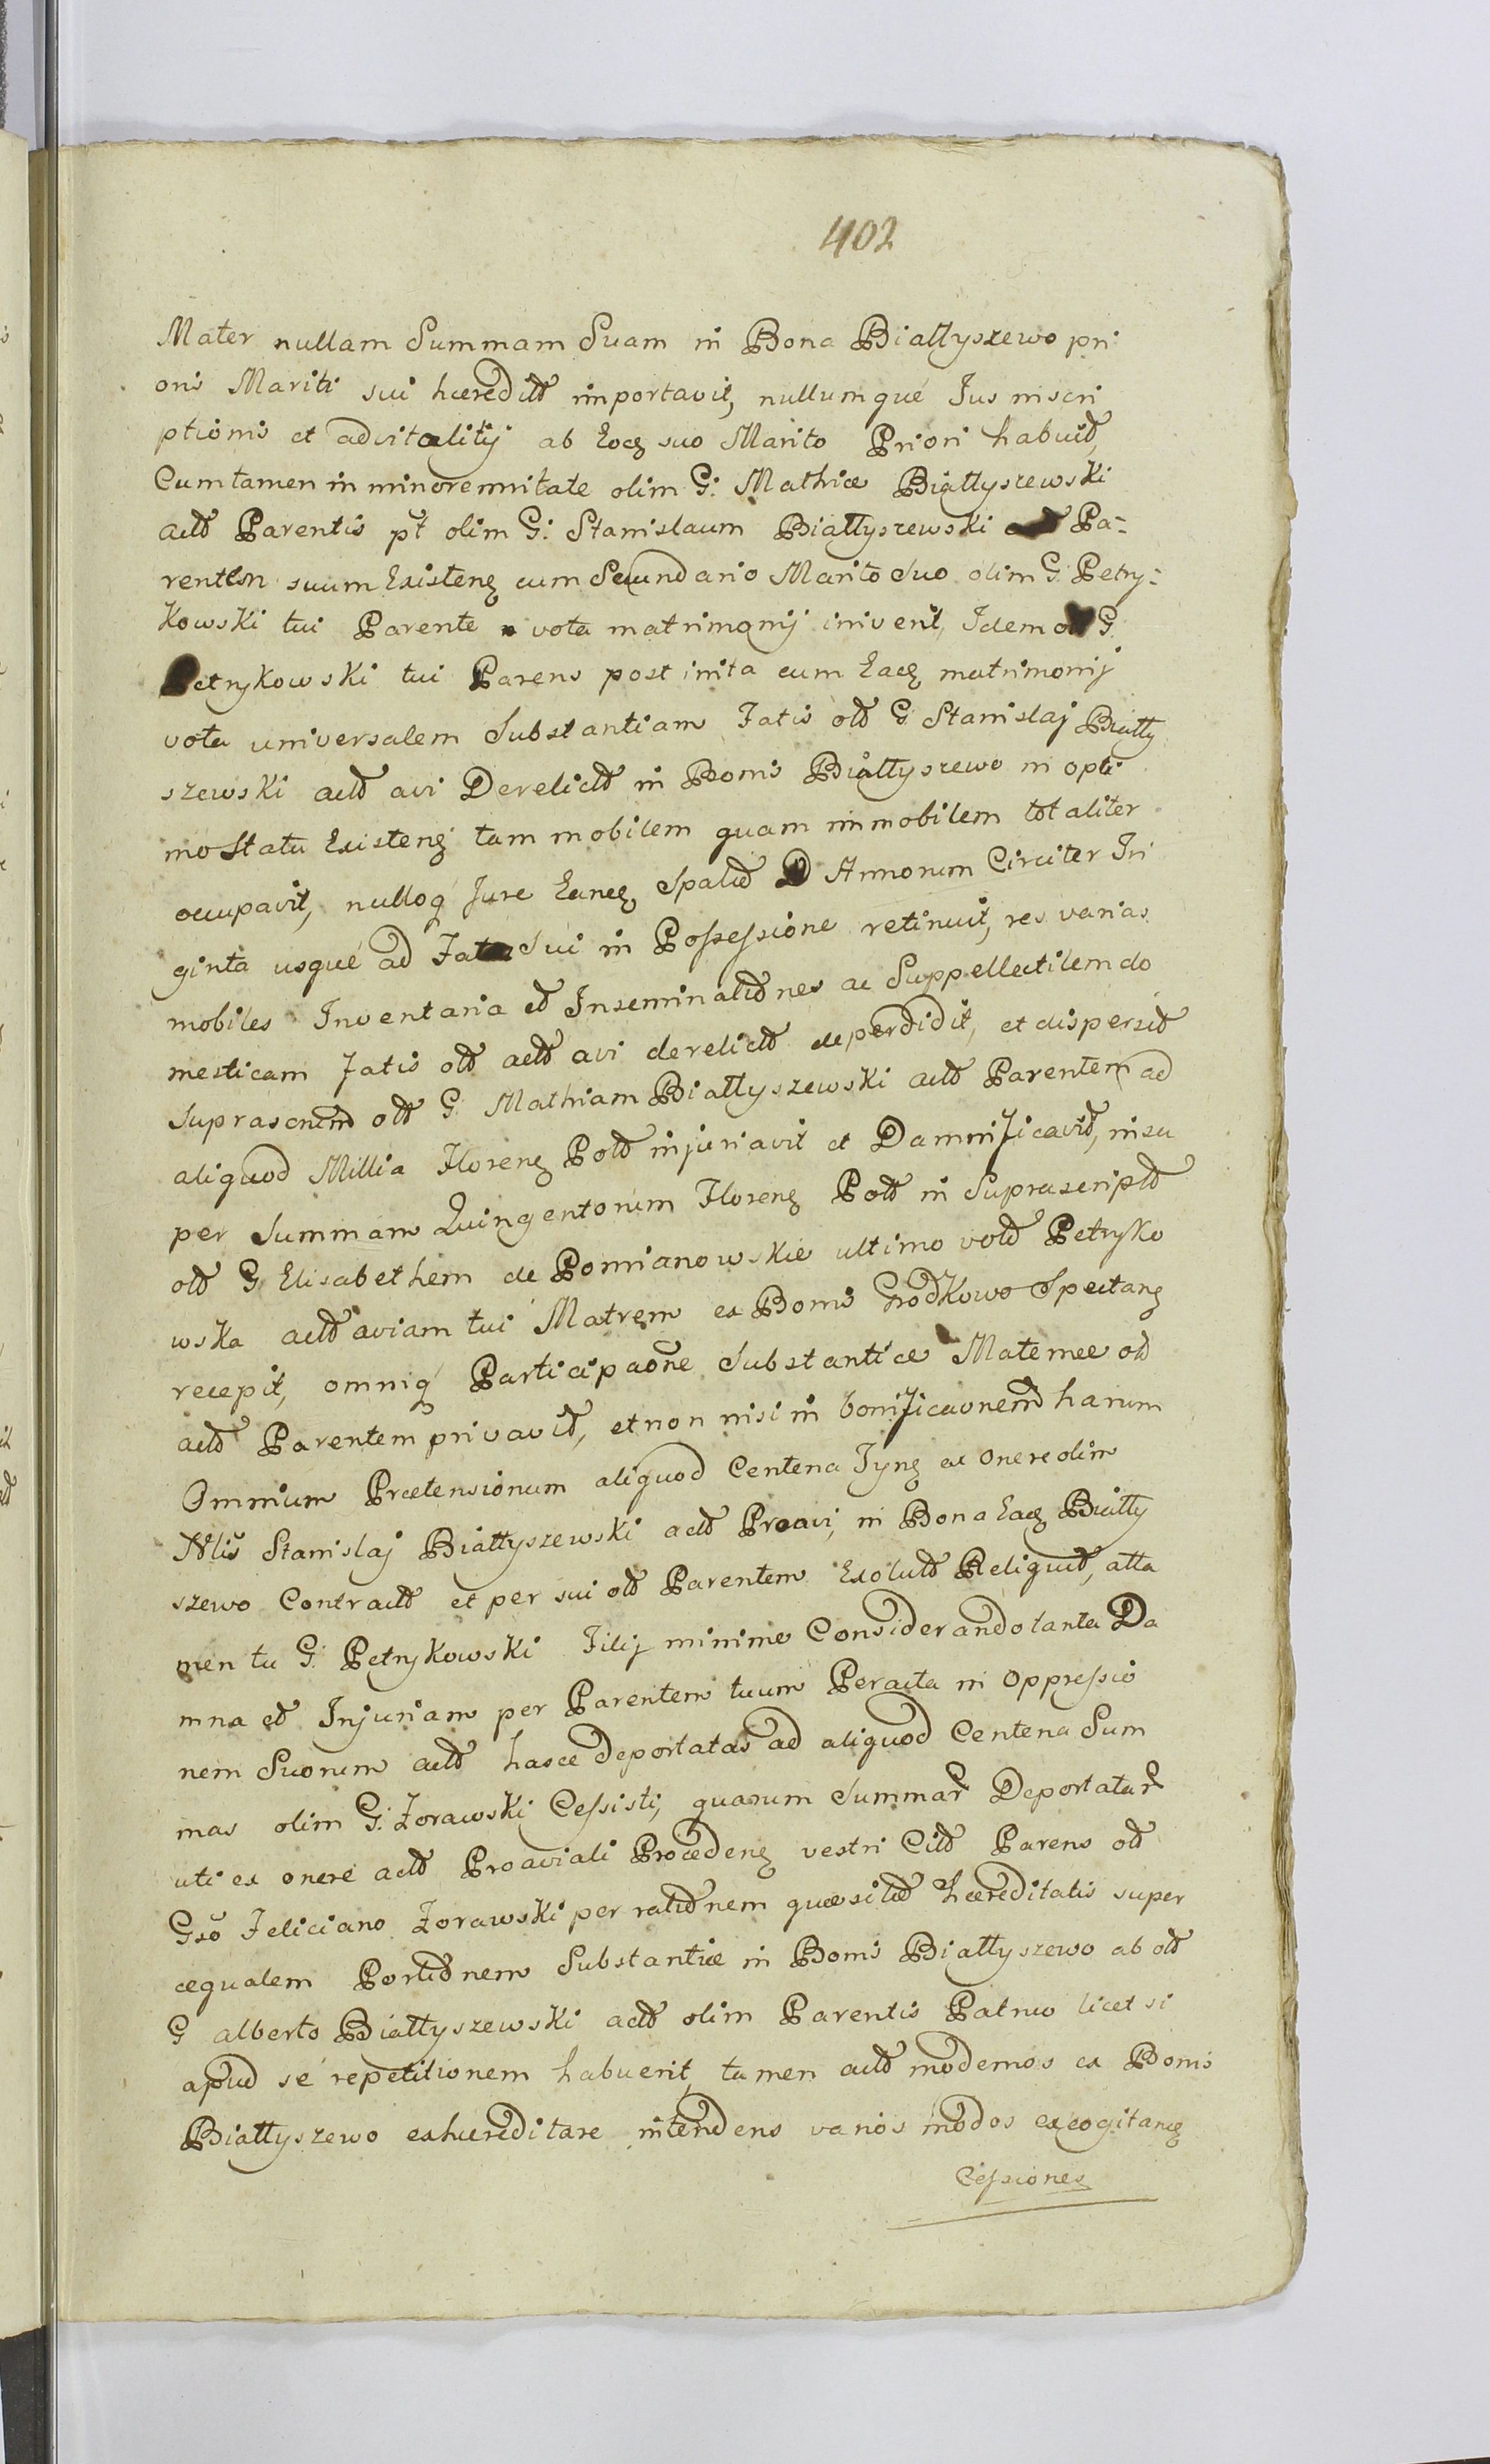 402
Mater nullam Summam Suam in Bona Białłyszewo pri
oris Mariti sui hæredit̃ importavit, nullumqué Jus inscri
ptionis et advitalitij ab Eoq suo Marito Priori habuit,
Cum tamen in minorennitate olim G: Mathiæ Białłyszewski
act̃ Parentis pt̃ olim G: Stanislaum Białłyszewski Pa-
rentem suum Existenq cum Secundario Marito Suo olim G: Petry-
kowski tui Parente vota matrimonij iniverit, Idem ol̃ G.
Petrykowski tui Parens post inita cum Eaq matrimonij
vota universalem Substantiam Fatis ol̃ G: Stanislaj Białły
szewski act̃ avi Derelict̃ in Bonis Białłyszewo in opti
mo Statu Existenq tam mobilem quam immobilem totaliter
occupavit, nulloq Jure Eanq Spatio Annorum Circiter Tri
ginta usqué ad Fata Sui in Possessione retinuit, res varias
mobiles Inventaria et Inseminationes ac Suppellectilem do
mesticam fatis ol̃ act̃ avi derelict̃ deperdidit, et dispersit
Suprascript̃ ol̃ G: Mathiam Białłyszewski act̃ Parentem ad
aliquod Millia Florenq Pol̃ injuriavit et Damnificavit, insu
per Summam Quingentorum Florenq Pol̃ in Suprascript̃
ol̃ G: Elisabethem de Pomianowskie ultimo vot̃ Petryko
wska act̃ aviam tui Matrem ex Bonis Grodkowo Spectanq
recepit, omniq Participaõne Substantiæ Maternæ ol̃
act̃ Parentem privavit, et non nisi in bonificaõnem harum
Omnium Prætensionum aliquod Centena Tynq ex onere olim
Nlis̃ Stanislaj Białłyszewski act̃ Proavi, in Bona Eaq Białły
szewo Contract̃ et per sui ol̃ Parentem Exolut̃ Reliquit, atta
men tu G: Petrykowski Filij minime Considerando tanta Da
mna et Injuriam per Parentem tuum Peracta in oppressio
nem Suorum act̃ hasce Deportatas ad aliquod Centena Sum
mas olim G: Zorawski Cessisti, quarum Summar̃ Deportatar̃
uti ex onere act̃ Proaviali Procedenq vestri Cit̃ Parens ol̃
Gsõ Feliciano Zorawski per rationem quæsitæ hæreditatis super
æqualem Portionem Substantiæ in Bonis Białłyszewo ab ol̃
G alberto Białłyszewski act̃ olim Parentis Patruo licet si
apud sé repetitionem habuerit, tamen act̃ modernos ex Bonis
Białłyszewo exhæreditare intendens varios modos excogitanq
Cessiones